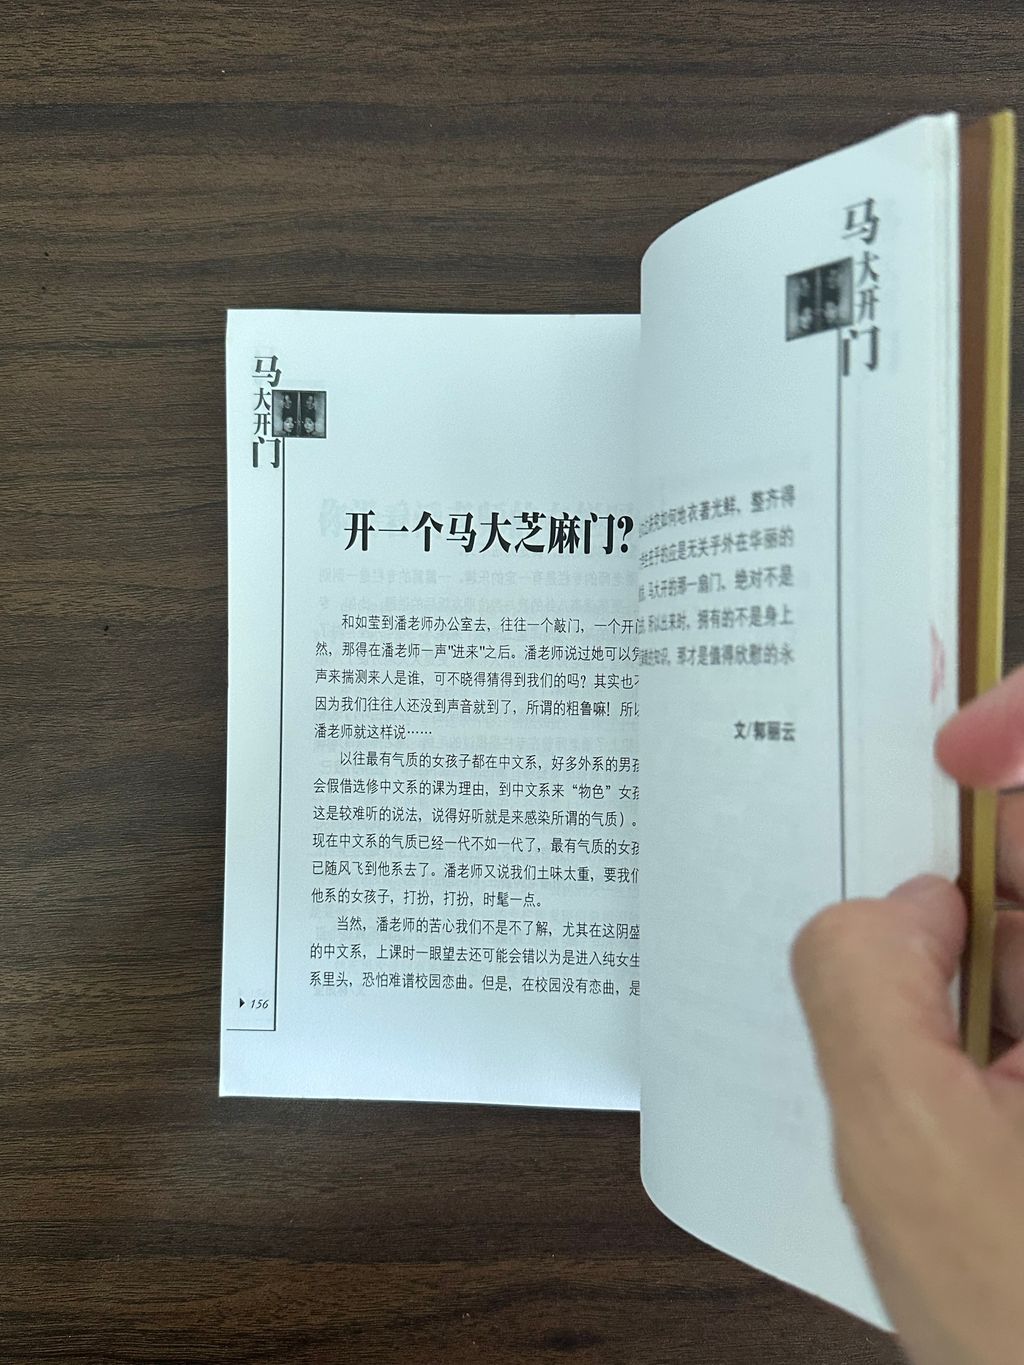 马大开门
开一个马大芝麻门?
和如莹到潘老师办公室去，往往一个敲门，一个开门
然，那得在潘老师一声"进来"之后。潘老师说过她可以凭
声来揣测来人是谁，可不晓得猜得到我们的吗？其实也不
因为我们往往人还没到声音就到了，所谓的粗鲁嘛！所以
潘老师就这样说……
以往最有气质的女孩子都在中文系，好多外系的男孩
会假借选修中文系的课为理由，到中文系来“物色”女孩
这是较难听的说法，说得好听就是来感染所谓的气质）。
现在中文系的气质已经一代不如一代了，最有气质的女孩
已随风飞到他系去了。潘老师又说我们土味太重，要我们
他系的女孩子，打扮，打扮，时髦一点。
当然，潘老师的苦心我们不是不了解，尤其在这阴盛
的中文系，上课时一眼望去还可能会错以为是进入纯女生
系里头，恐怕难谱校园恋曲。但是，在校园没有恋曲，是
156
马大开门
如何地衣著光鲜、整齐得
在乎的应是无关乎外在华丽的
马大开的那一扇门、绝对不是
所以出来时，拥有的不是身上
的知识，那才是值得欣慰的永
文/郭丽云